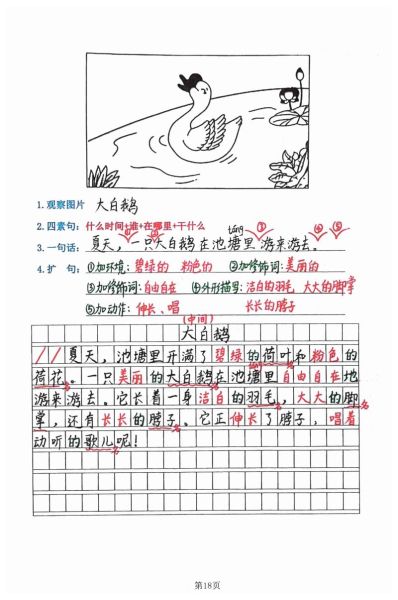 1.观察图片 大白鹅
2.四素句:什么时间+谁+在哪里+干什么
3.一句话:夏天,一只大白鹅在池塘里游来游去。
táng
① ② ③ ④ ⑤
4.扩 句:①加环境:碧绿的 粉色的 ②加修饰词:美丽的
③加修饰词:自由自在 ④外形描写:洁白的羽毛,大大的脚掌
⑤加动作:伸长、唱 长长的脖子
(中间)
大白鹅
//夏天,池塘里开满了碧绿的荷叶和粉色的
荷花。一只美丽的大白鹅在池塘里自由自在地
游来游去。它长着一身洁白的羽毛,大大的脚
掌,还有长长的脖子。它正伸长了脖子,唱着
动听的歌儿呢!
第18页